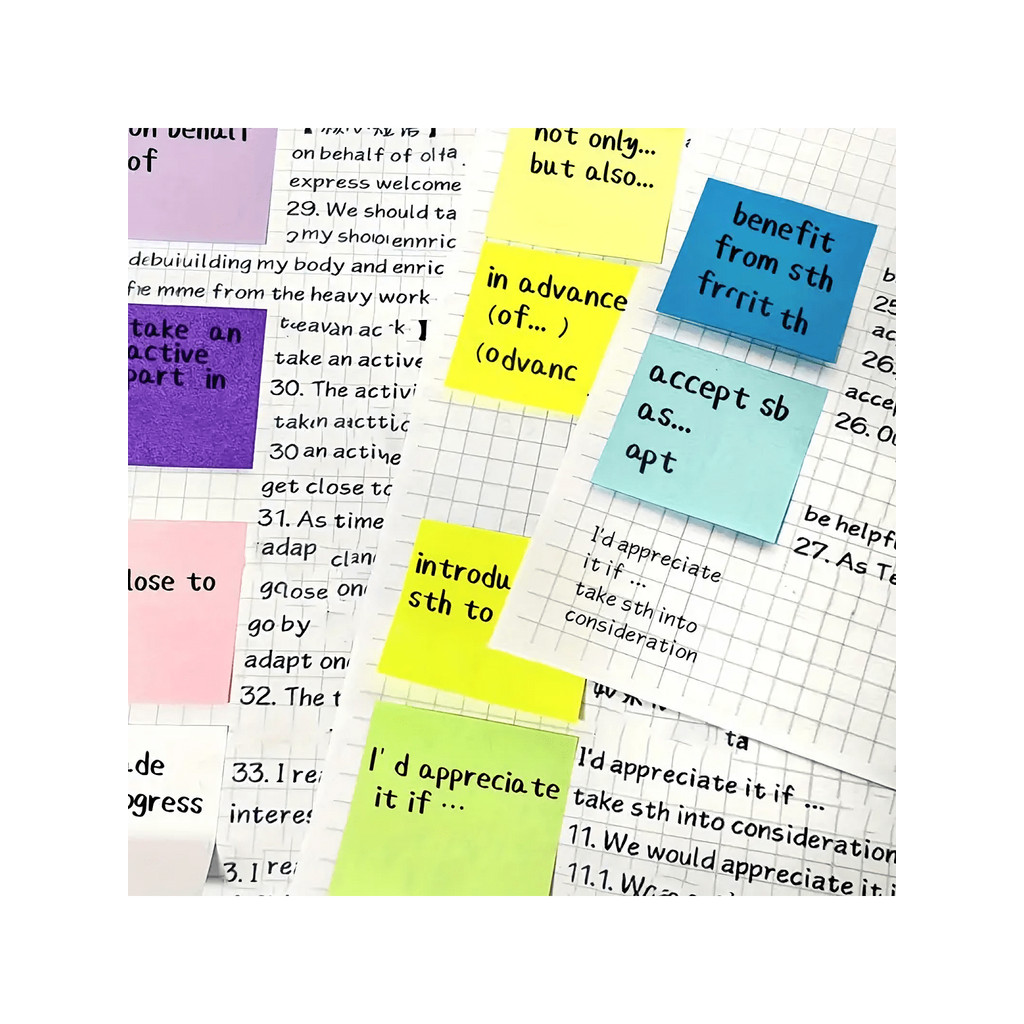 on behalf
of
on behalf of
express welcome
29. We should ta
my body and enric
from the heavy work
take an
active
part in
take an active
30. The activi
30 an active
get close to
31. As time
adap
lose to
on
go by
adapt on
32. The t
de
ogress
33. I re
interes
3. I re
not only...
but also...
in advance
(of... )
(odvanc
introdu
sth to
I'd appreciate
it if ...
benefit
from sth
th
accept sb
as...
apt
b
25
ac
26.
accep
26. Ou
be helpf
27. As Te
I'd appreciate
it if ...
take sth into
consideration
ta
I'd appreciate it if ...
take sth into consideration
11. We would appreciate it i
11.1.